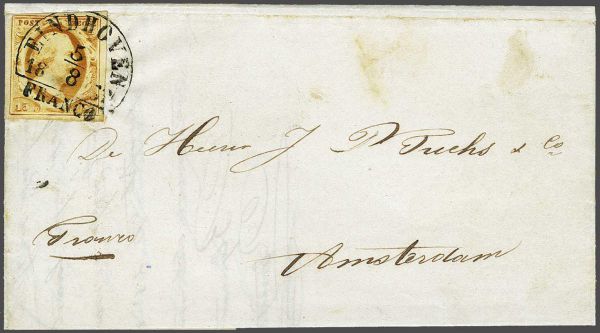 POST
EINDHOVEN
5/8
18
FRANCO
15
De Heeren J P Fuchs & Co.
Franco
Amsterdam